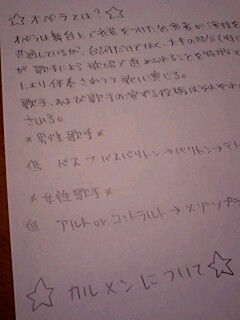 ☆オペラとは?☆
オペラは舞台上で衣装をつけた出演者が演技を
共通しているが、台詞だけではなく、大半の部分(特に
が歌手による歌唱で進められることを特徴と
により伴奏されつつ歌い演じる。
歌手、および歌手の演ずる役柄はそれぞれ
される。
*男性歌手*
低 バス→バスバリトン→バリトン→テ
*女性歌手*
低 アルト or コントラルト→メゾソプラ
☆カルメンについて☆